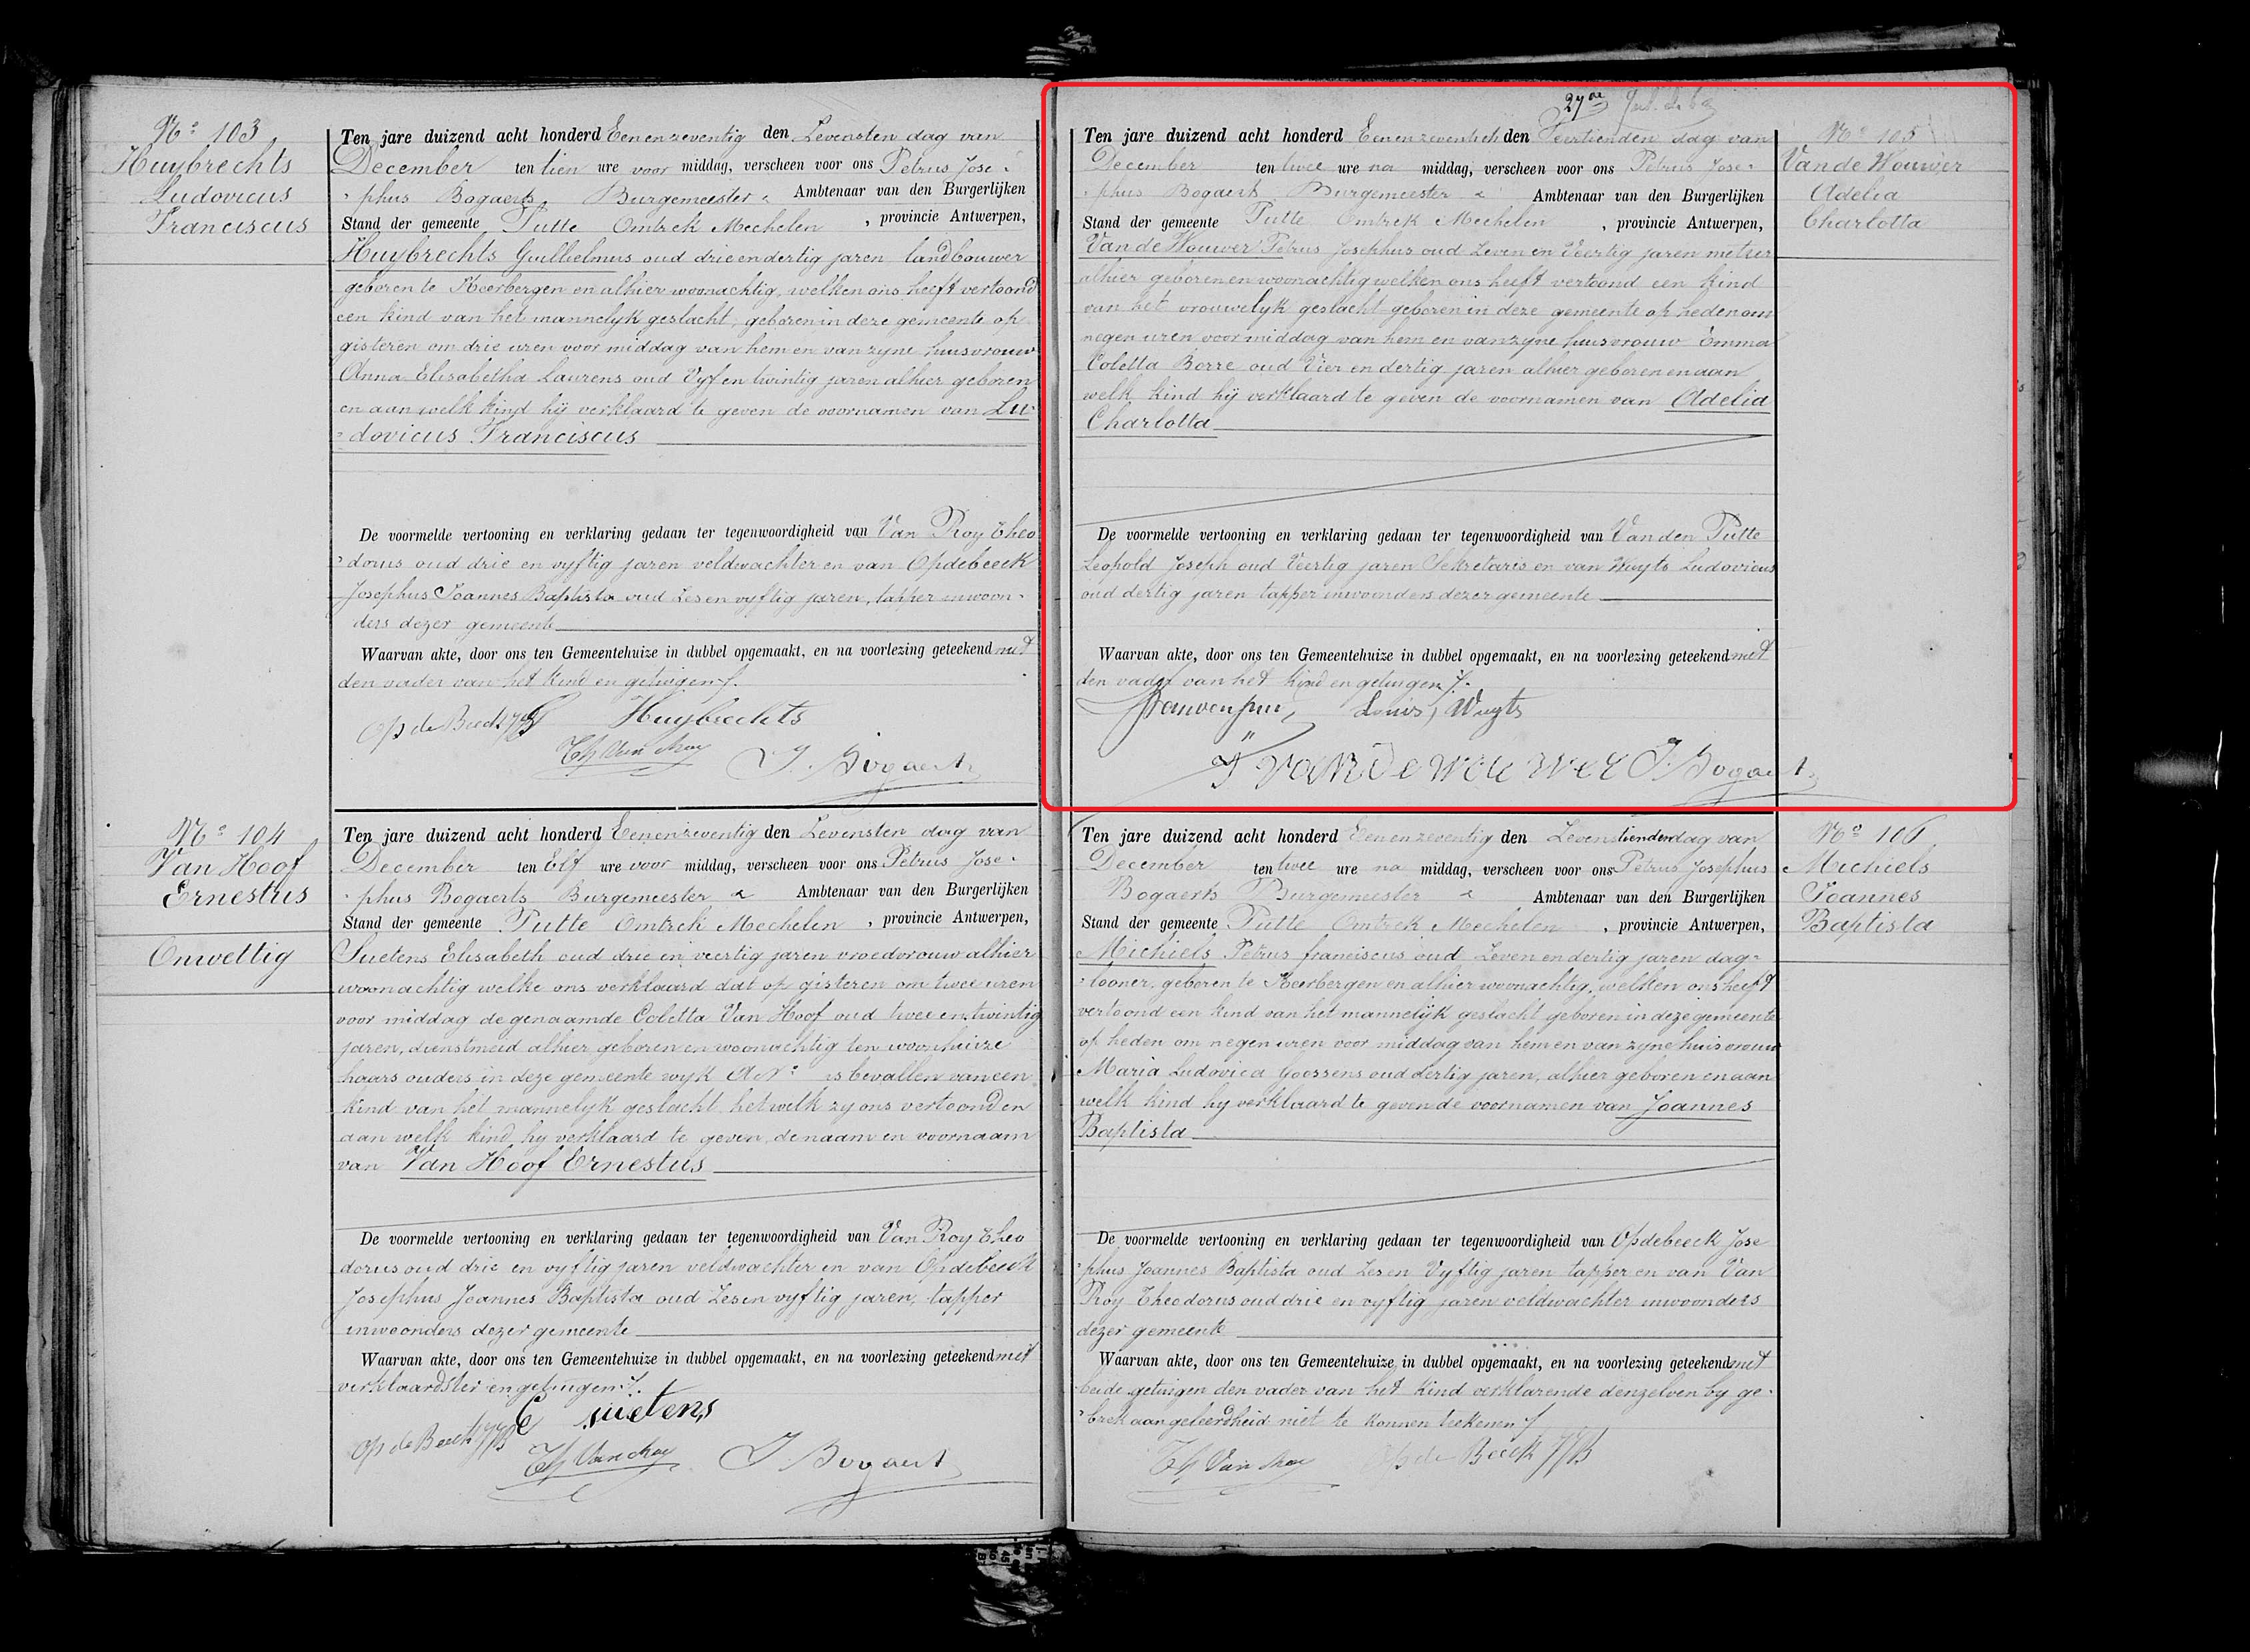 Nº 103
Huybrechts
Ludovicus
Franciscus
Ten jare duizend acht honderd Eenenzeventig den Zevensten dag van
December ten tien ure voor middag, verscheen voor ons Petrus Jose-
-phus Bogaerts, Burgemeester & Ambtenaar van den Burgerlijken
Stand der gemeente Putte Omtrek Mechelen, provincie Antwerpen,
Huybrechts Guilhelmus oud drieendertig jaren landbouwer
geboren te Keerbergen en alhier woonachtig, welken ons heeft vertoond
een kind van het mannelyk geslacht, geboren in deze gemeente op
gisteren om drie uren voor middag van hem en van zyne huisvrouw
Anna Elisabetha Laurens oud Vyf en twintig jaren alhier geboren
en aan welk kind hy verklaard te geven de voornamen van Lu-
-dovicus Franciscus
De voormelde vertooning en verklaring gedaan ter tegenwoordigheid van Van Roy Theo
-dorus oud drie en vyftig jaren veldwachter en van Opdebeeck
Josephus Joannes Baptista oud Zes en vyftig jaren, tapper inwoon-
ders dezer gemeente
Waarvan akte, door ons ten Gemeentehuize in dubbel opgemaakt, en na voorlezing geteekend met
den vader van het kind en getuigen
Op de Beeck Huybrechts
Th Van Roy J. Bogaert
Nº 104
Van Hoof
Ernestus
Onwettig
Ten jare duizend acht honderd Eenenzeventig den Zevensten dag van
December ten Elf ure voor middag, verscheen voor ons Petrus Jose-
-phus Bogaerts Burgemeester & Ambtenaar van den Burgerlijken
Stand der gemeente Putte Omtrek Mechelen, provincie Antwerpen,
Suetens Elisabeth oud drie en veertig jaren vroedvrouw alhier
woonachtig welke ons verklaard dat op gisteren om twee uren
voor middag de genaamde Coletta Van Hoof oud twee en twintig
jaren, dienstmeid alhier geboren en woonachtig ten woonhuize
haars ouders in deze gemeente wyk A Nº is bevallen van een
kind van het mannelyk geslacht hetwelk zy ons vertoond en
aan welk kind hy verklaard te geven de naam en voornaam
van Van Hoof Ernestus
De voormelde vertooning en verklaring gedaan ter tegenwoordigheid van Van Roy Theo
dorus oud drie en vyftig jaren veldwachter en van Opdebeeck
Josephus Joannes Baptista oud Zes en vyftig jaren, tapper
inwoonders dezer gemeente
Waarvan akte, door ons ten Gemeentehuize in dubbel opgemaakt, en na voorlezing geteekend met
verklaardster en getuigen
Op de Beeck E Suetens
Th Van Roy J. Bogaert
27ste
Nº 105
Van de Wouwer
Adelia
Charlotta
Ten jare duizend acht honderd Eenenzeventich den Veertienden dag van
December ten twee ure na middag, verscheen voor ons Petrus Jose-
-phus Bogaerts Burgemeester & Ambtenaar van den Burgerlijken
Stand der gemeente Putte Omtrek Mechelen, provincie Antwerpen,
Van de Wouwer Petrus Josephus oud Zeven en Veertig jaren metser
alhier geboren en woonachtig welken ons heeft vertoond een kind
van het vrouwelyk geslacht geboren in deze gemeente op heden om
negen uren voor middag van hem en van zyne huisvrouw Emma
Coletta Borre oud Vier en dertig jaren alhier geboren en aan
welk kind hy verklaard te geven de voornamen van Adelia
Charlotta
De voormelde vertooning en verklaring gedaan ter tegenwoordigheid van Van den Putte
Leopold Joseph oud Veertig jaren Sekretaris en van Wuyts Ludovicus
oud dertig jaren tapper inwoonders dezer gemeente
Waarvan akte, door ons ten Gemeentehuize in dubbel opgemaakt, en na voorlezing geteekend met
den vader van het kind en getuigen
Louis Wuyts
P vandewauwer J. Bogaert
Nº 106
Michiels
Joannes
Baptista
Ten jare duizend acht honderd Eenenzeventig den Zevenstienden dag van
December ten twee ure na middag, verscheen voor ons Petrus Josephus
Bogaerts Burgemeester & Ambtenaar van den Burgerlijken
Stand der gemeente Putte Omtrek Mechelen, provincie Antwerpen,
Michiels Petrus franciscus oud Zeven en dertig jaren dag-
-looner, geboren te Keerbergen en alhier woonachtig, welken ons heeft
vertoond een kind van het mannelyk geslacht geboren in deze gemeente
op heden om negen uren voor middag van hem en van zyne huisvrouw
Maria Ludovica Goossens oud dertig jaren, alhier geboren en aan
welk kind hy verklaard te geven de voornamen van Joannes
Baptista
De voormelde vertooning en verklaring gedaan ter tegenwoordigheid van Opdebeeck Jose
-phus Joannes Baptista oud Zes en Vyftig jaren tapper en van Van
Roy Theodorus oud drie en vyftig jaren veldwachter inwoonders
dezer gemeente
Waarvan akte, door ons ten Gemeentehuize in dubbel opgemaakt, en na voorlezing geteekend met
beide getuigen den vader van het kind verklarende denzelven by ge-
-brek aan geleerdheid niet te konnen teekenen
Th Van Roy Op de Beeck